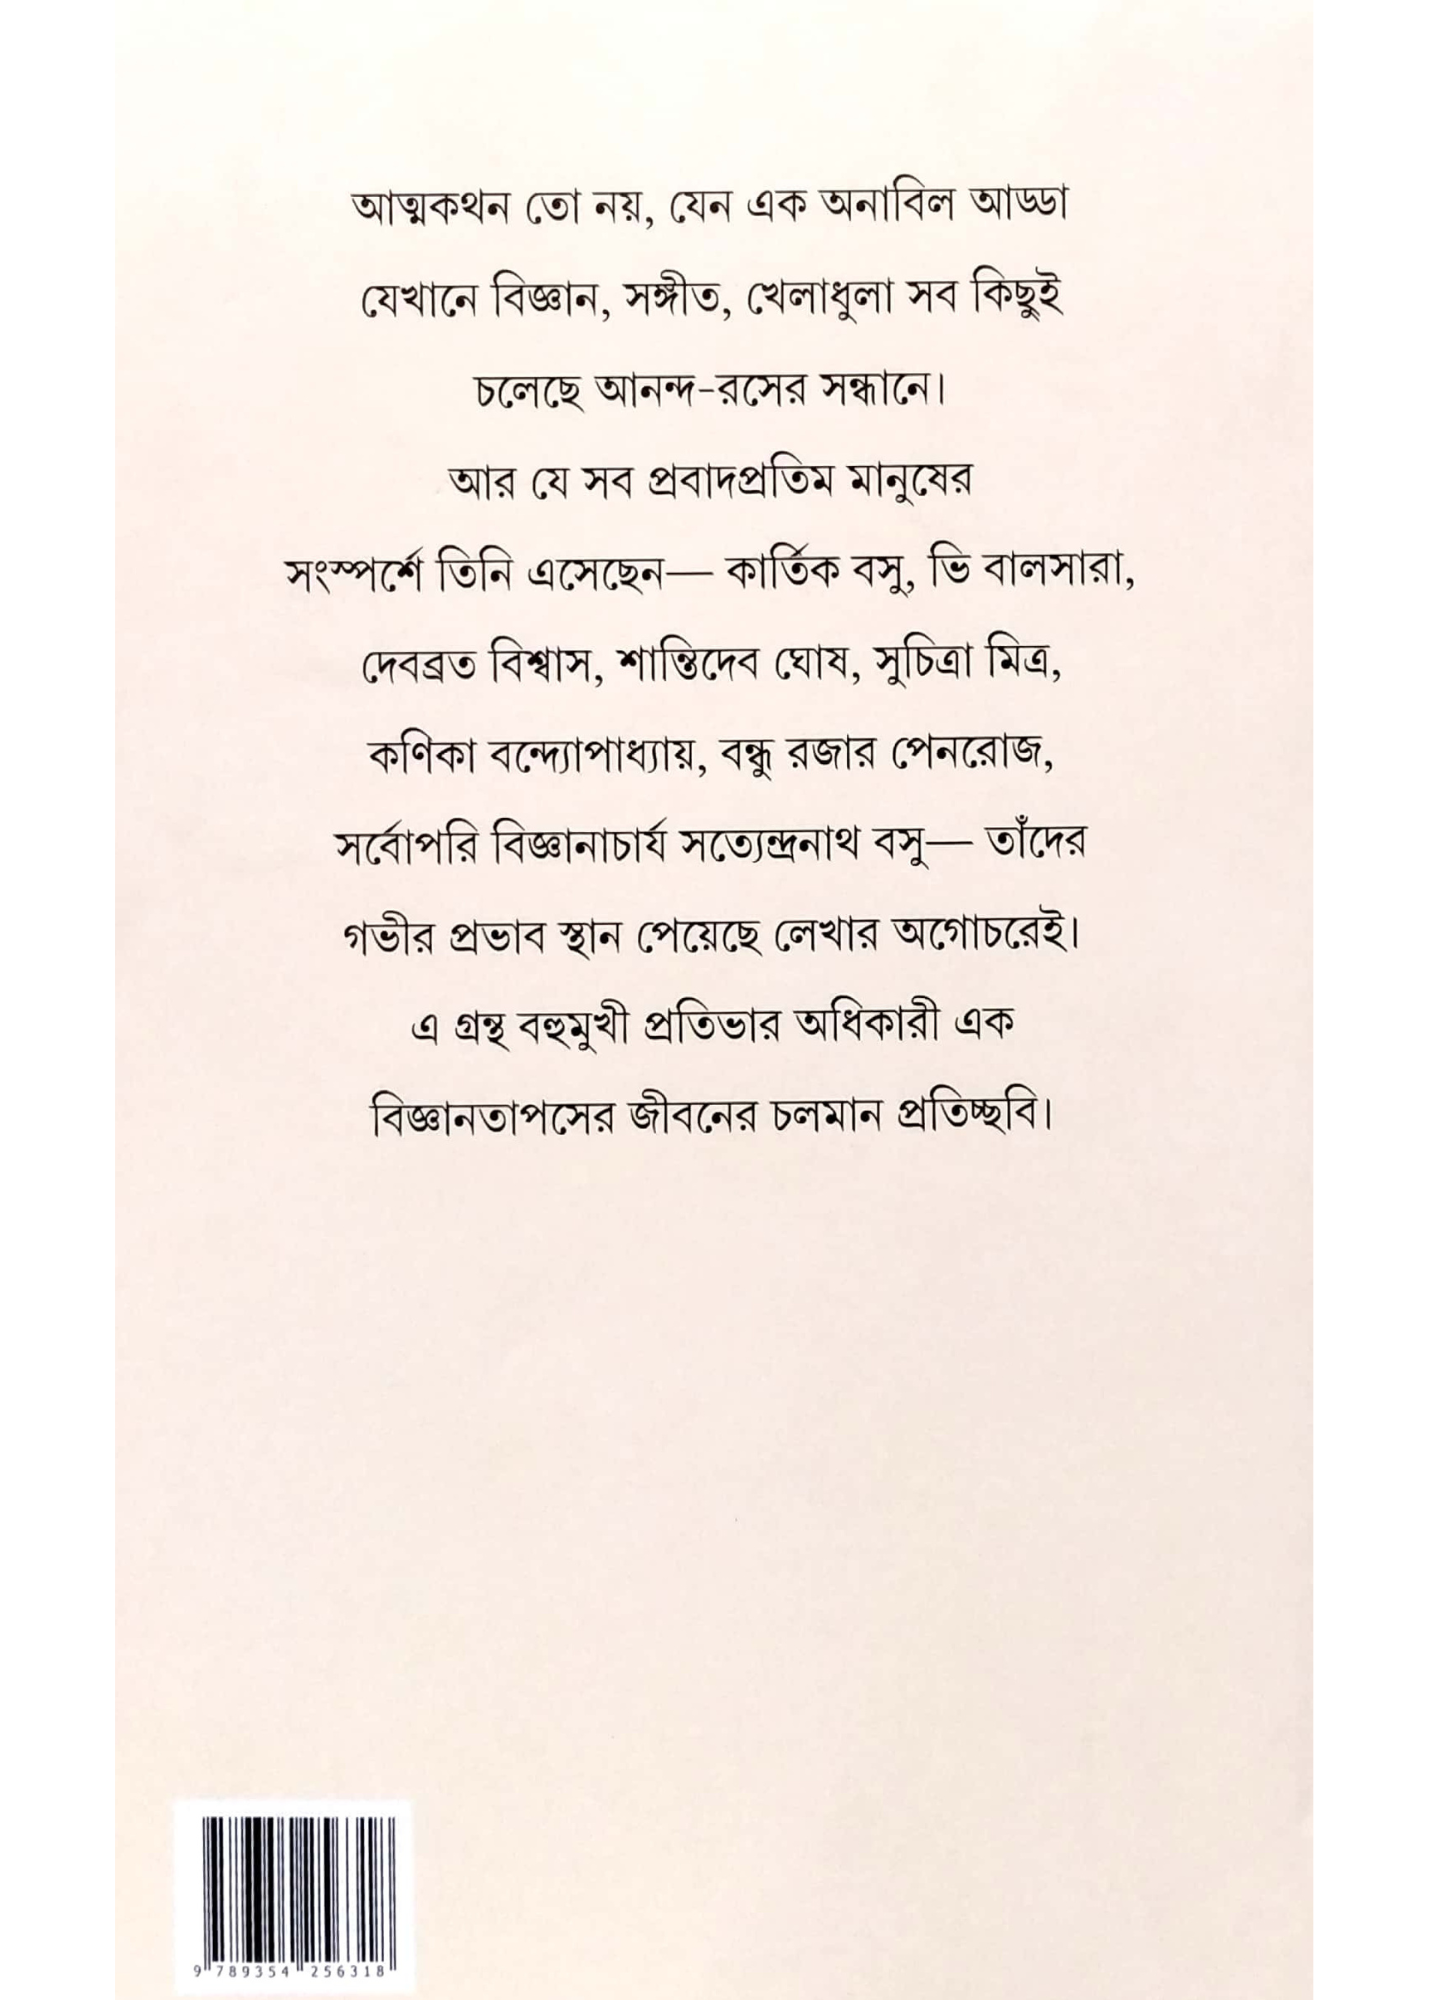 আত্মকথন তো নয়, যেন এক অনাবিল আড্ডা
যেখানে বিজ্ঞান, সঙ্গীত, খেলাধুলা সব কিছুই
চলেছে আনন্দ-রসের সন্ধানে।
আর যে সব প্রবাদপ্রতিম মানুষের
সংস্পর্শে তিনি এসেছেন— কার্তিক বসু, ভি বালসারা,
দেবব্রত বিশ্বাস, শান্তিদেব ঘোষ, সুচিত্রা মিত্র,
কণিকা বন্দ্যোপাধ্যায়, বন্ধু রজার পেনরোজ,
সর্বোপরি বিজ্ঞানাচার্য সত্যেন্দ্রনাথ বসু— তাঁদের
গভীর প্রভাব স্থান পেয়েছে লেখার অগোচরেই।
এ গ্রন্থ বহুমুখী প্রতিভার অধিকারী এক
বিজ্ঞানতাপসের জীবনের চলমান প্রতিচ্ছবি।
9 789354 256318